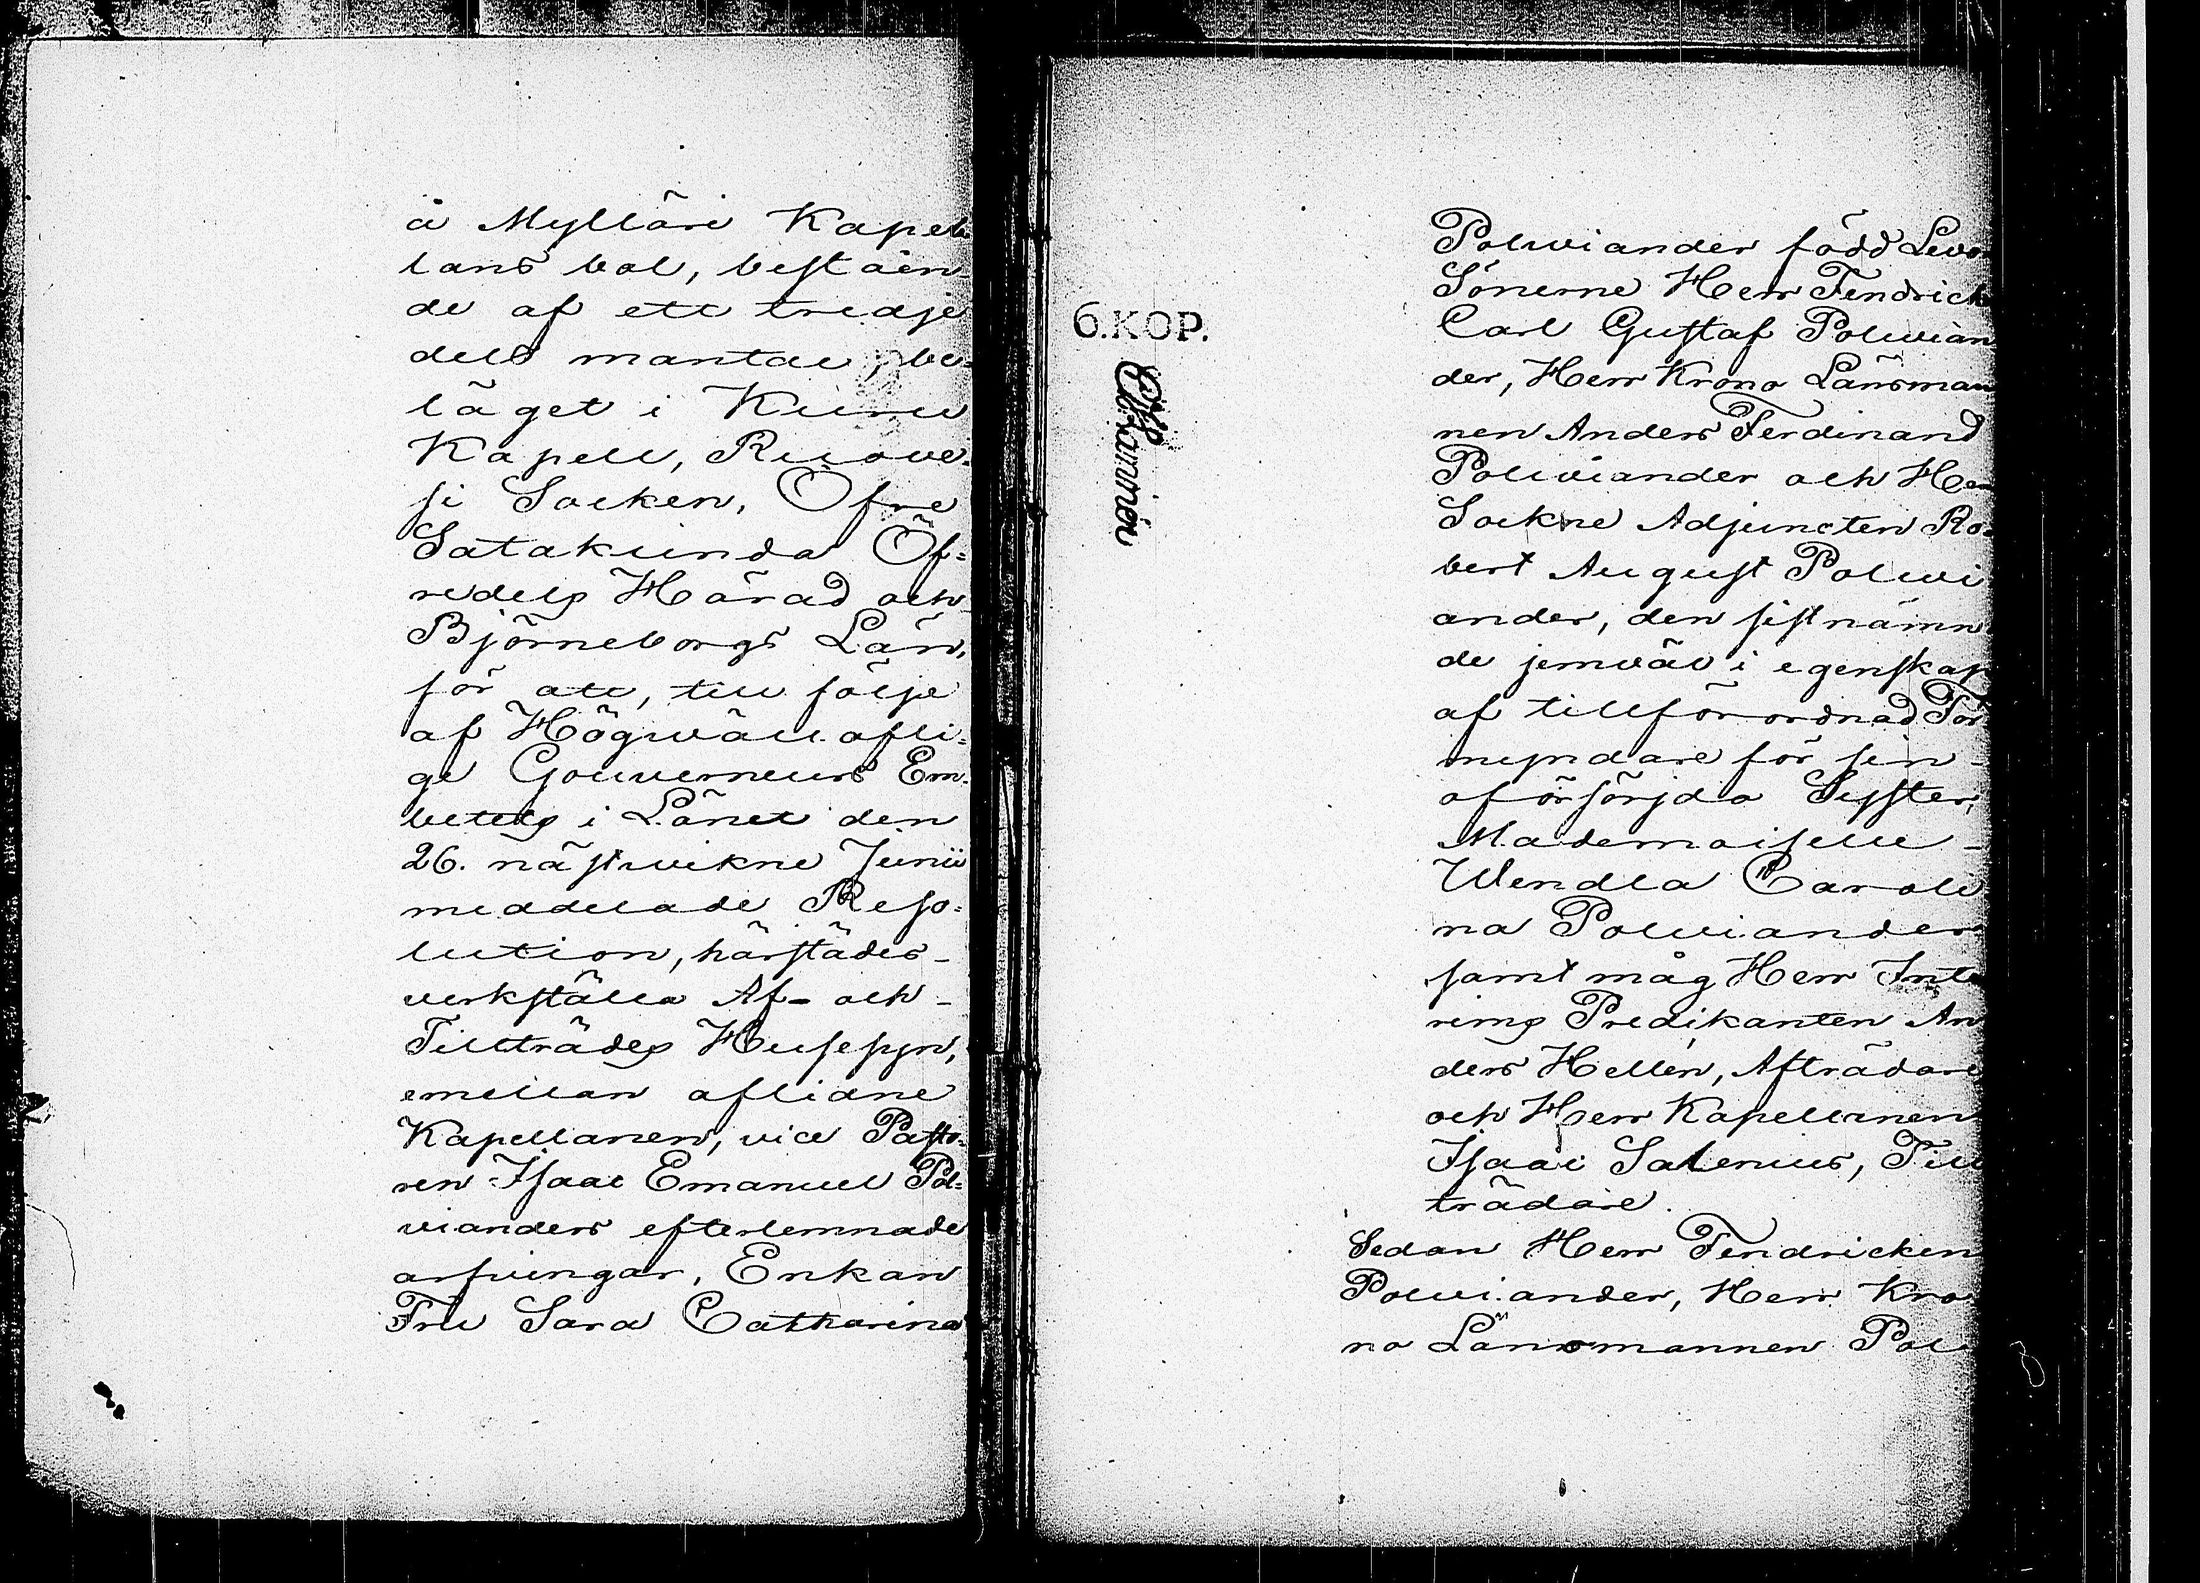 å Mylläri Kapel
lans bol, beståen-
de af ett tredje
dels mantal, be-
läget i Kuru
Kapell, Ruove-
si Socken, Öfre
Satakunda Öf=
redels Härad och
Björneborgs Län,
för att, till följe
af Högwällofli=
ge Gouverneurs Em-
betets i Länet den
26. nästvikne Junii
meddelade Reso=
lution, härstädes-
verkställa Af- och-
Tillträdes Husesyn,
emellan aflidne
Kapellanen, vice Pasto-
ren Isaac Emanuel Pol=
vianders efterlemnade
arfvingar, Enkan
Fru Sara Catharina
6.KOP.
Polviander född Levo
Sönerne Herr Fendrick
Carl Gustaf Polvian
der, Herr Krono Länsman
nen Anders Ferdinand
Polviander och Herr
Sockne Adjuncten Ro-
bert August Polvi
ander, den sistnämn
de jemväl i egenskap
af tillförordnad För
myndare för sin-
oförsörjda Syster,
Mademoiselle-
Wendla Caroli
na Polviander
samt måg Herr Inte
rims Predikanten An
ders Hellén, Afträdare
och Herr Kapellanen
Isaac Salenius, Till
trädare.
Sedan Herr Fendricken
Polviander, Herr Kro
no Länsmannen Pol
8